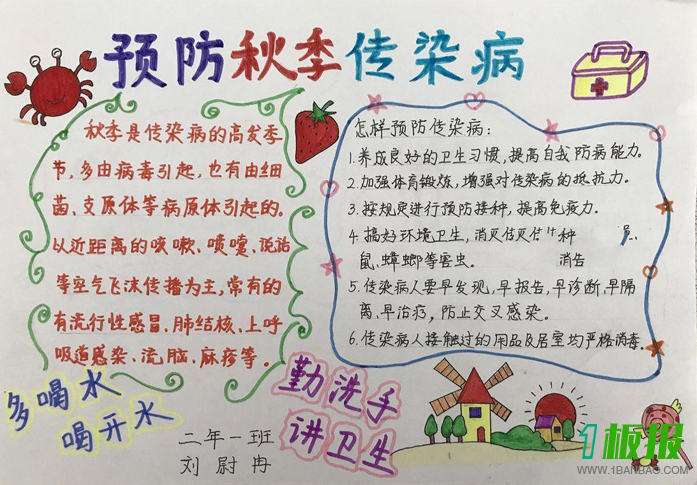 预防秋季传染病
秋季是传染病的高发季
节,多由病毒引起,也有由细
菌、支原体等病原体引起的。
以近距离的咳嗽、喷嚏、说话
等空气飞沫传播为主,常有的
有流行性感冒、肺结核、上呼
吸道感染、流脑、麻疹等。
怎样预防传染病:
1.养成良好的卫生习惯,提高自我防病能力。
2.加强体育锻炼,增强对传染病的抵抗力。
3.按规定进行预防接种,提高免疫力。
4.搞好环境卫生,消灭 种
鼠、蟑螂等害虫。 消告
5.传染病人要早发现,早报告,早诊断,早隔
离,早治疗,防止交叉感染。
6.传染病人接触过的用品及居室均严格消毒。
多喝水
喝开水
勤洗手
讲卫生
二年一班
刘尉冉
1板报
WWW.1BANBAO.COM